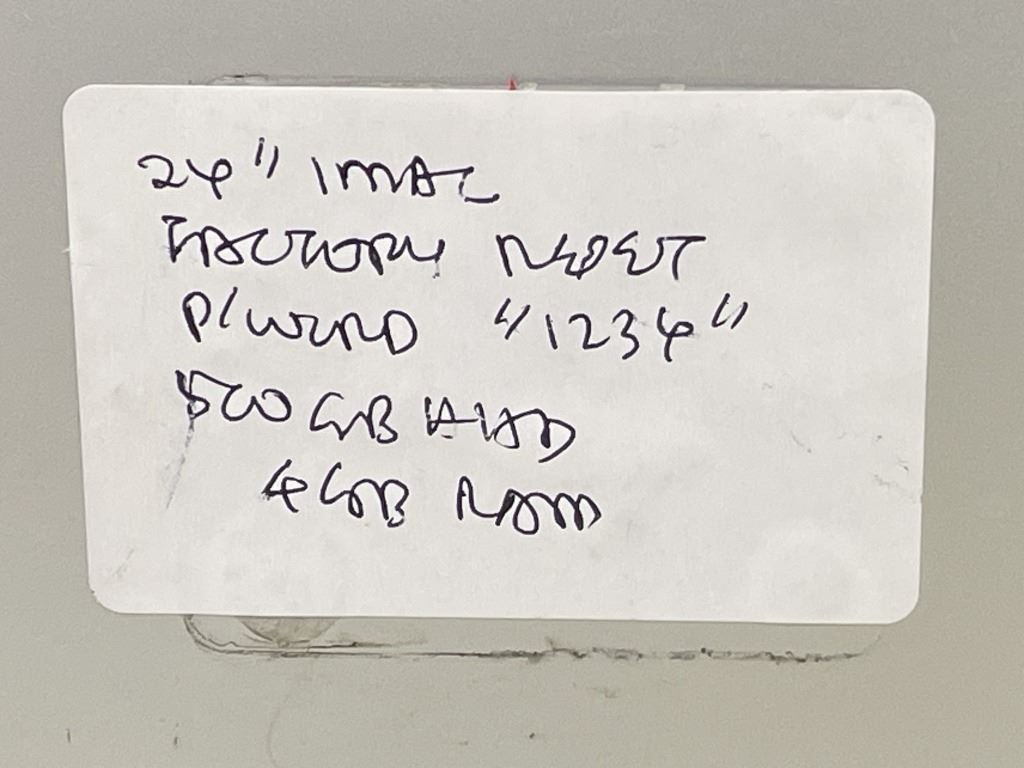 24" IMAC
FACTORY RESET
P/WORD "1234"
500 GB HHD
4 GB RAM